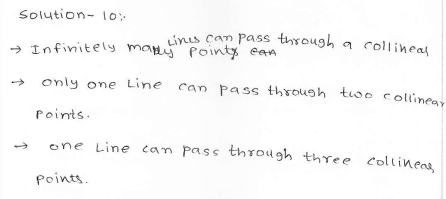 Solution- 10:-
→ Infinitely many Lines can pass through a collinear points can
→ only one Line can pass through two collinear
points.
→ one Line can pass through three collinear
points.